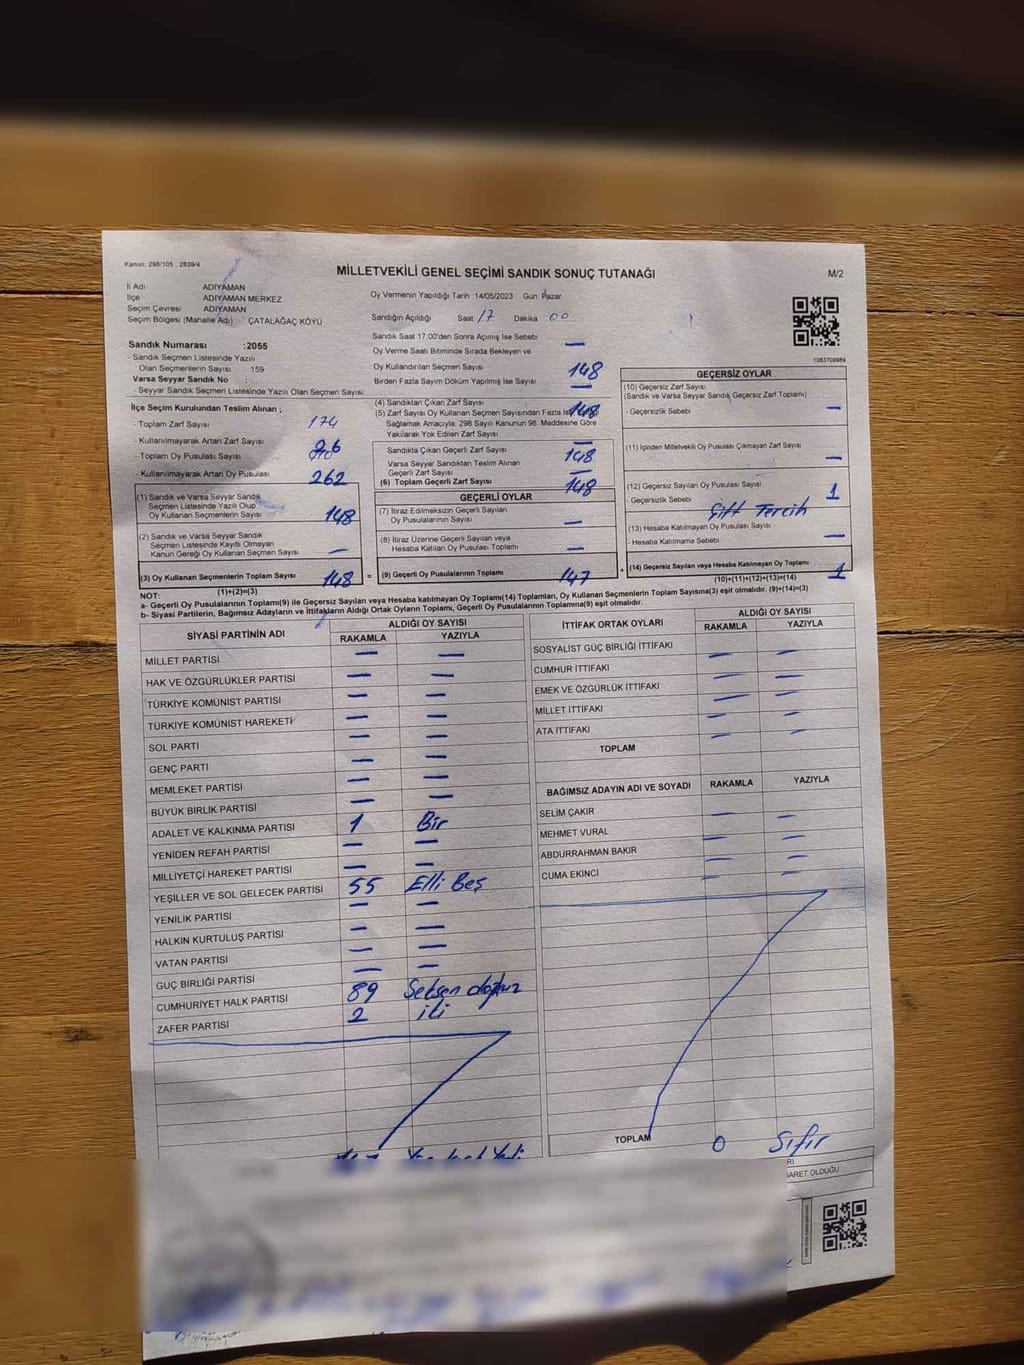 Kanun: 298/105 , 2839/4
MİLLETVEKİLİ GENEL SEÇİMİ SANDIK SONUÇ TUTANAĞI
M/2
İl Adı ADIYAMAN
İlçe ADIYAMAN MERKEZ
Seçim Çevresi ADIYAMAN
Seçim Bölgesi (Mahalle Adı) : ÇATALAĞAÇ KÖYÜ
Oy Vermenin Yapıldığı Tarih :14/05/2023 Gün: Pazar
Sandığın Açıldığı Saat 17 Dakika 00
1083709989
Sandık Numarası :2055
- Sandık Seçmen Listesinde Yazılı
Olan Seçmenlerin Sayısı : 159
Varsa Seyyar Sandık No :
- Seyyar Sandık Seçmen Listesinde Yazılı Olan Seçmen Sayısı:
Sandık Saat 17.00'den Sonra Açılmış İse Sebebi —
Oy Verme Saati Bitiminde Sırada Bekleyen ve
Oy Kullandırılan Seçmen Sayısı 148
Birden Fazla Sayım Döküm Yapılmış İse Sayısı —
İlçe Seçim Kurulundan Teslim Alınan ;
- Toplam Zarf Sayısı 174
- Kullanılmayarak Artan Zarf Sayısı 26
- Toplam Oy Pusulası Sayısı
- Kullanılmayarak Artan Oy Pusulası 262
(1) Sandık ve Varsa Seyyar Sandık
Seçmen Listesinde Yazılı Olup
Oy Kullanan Seçmenlerin Sayısı 148
(2) Sandık ve Varsa Seyyar Sandık
Seçmen Listesinde Kayıtlı Olmayan
Kanun Gereği Oy Kullanan Seçmen Sayısı —
(3) Oy Kullanan Seçmenlerin Toplam Sayısı 148 =
(1)+(2)=(3)
(4) Sandıktan Çıkan Zarf Sayısı 148
(5) Zarf Sayısı Oy Kullanan Seçmen Sayısından Fazla İse
Sağlamak Amacıyla, 298 Sayılı Kanunun 98. Maddesine Göre
Yakılarak Yok Edilen Zarf Sayısı —
Sandıkta Çıkan Geçerli Zarf Sayısı 148
Varsa Seyyar Sandıktan Teslim Alınan
Geçerli Zarf Sayısı —
(6) Toplam Geçerli Zarf Sayısı 148
GEÇERLİ OYLAR
(7) İtiraz Edilmeksizin Geçerli Sayılan
Oy Pusulalarının Sayısı —
(8) İtiraz Üzerine Geçerli Sayılan veya
Hesaba Katılan Oy Pusulası Toplamı —
(9) Geçerli Oy Pusulalarının Toplamı 147 +
GEÇERSİZ OYLAR
(10) Geçersiz Zarf Sayısı
(Sandık ve Varsa Seyyar Sandık Geçersiz Zarf Toplamı)
- Geçersizlik Sebebi —
(11) İçinden Milletvekili Oy Pusulası Çıkmayan Zarf Sayısı
—
(12) Geçersiz Sayılan Oy Pusulası Sayısı 1
- Geçersizlik Sebebi Çift Tercih
(13) Hesaba Katılmayan Oy Pusulası Sayısı
- Hesaba Katılmama Sebebi —
(14) Geçersiz Sayılan veya Hesaba Katılmayan Oy Toplamı 1
(10)+(11)+(12)+(13)=(14)
NOT:
a- Geçerli Oy Pusulalarının Toplamı(9) ile Geçersiz Sayılan veya Hesaba Katılmayan Oy Toplamı(14) Toplamları, Oy Kullanan Seçmenlerin Toplam Sayısına(3) eşit olmalıdır. (9)+(14)=(3)
b- Siyasi Partilerin, Bağımsız Adayların ve İttifakların Aldığı Ortak Oyların Toplamı, Geçerli Oy Pusulalarının Toplamına(9) eşit olmalıdır.
SİYASİ PARTİNİN ADI ALDIĞI OY SAYISI
RAKAMLA YAZIYLA
MİLLET PARTİSİ — —
HAK VE ÖZGÜRLÜKLER PARTİSİ — —
TÜRKİYE KOMÜNİST PARTİSİ — —
TÜRKİYE KOMÜNİST HAREKETİ — —
SOL PARTİ — —
GENÇ PARTİ — —
MEMLEKET PARTİSİ — —
BÜYÜK BİRLİK PARTİSİ — —
ADALET VE KALKINMA PARTİSİ 1 Bir
YENİDEN REFAH PARTİSİ — —
MİLLİYETÇİ HAREKET PARTİSİ — —
YEŞİLLER VE SOL GELECEK PARTİSİ 55 Elli Beş
YENİLİK PARTİSİ — —
HALKIN KURTULUŞ PARTİSİ — —
VATAN PARTİSİ — —
GÜÇ BİRLİĞİ PARTİSİ — —
CUMHURİYET HALK PARTİSİ 89 Seksen dokuz
ZAFER PARTİSİ 2 iki
İTTİFAK ORTAK OYLARI ALDIĞI OY SAYISI
RAKAMLA YAZIYLA
SOSYALİST GÜÇ BİRLİĞİ İTTİFAKI — —
CUMHUR İTTİFAKI — —
EMEK VE ÖZGÜRLÜK İTTİFAKI — —
MİLLET İTTİFAKI — —
ATA İTTİFAKI — —
TOPLAM
BAĞIMSIZ ADAYIN ADI VE SOYADI RAKAMLA YAZIYLA
SELİM ÇAKIR — —
MEHMET VURAL — —
ABDURRAHMAN BAKIR — —
CUMA EKİNCİ — —
TOPLAM 0 Sıfır